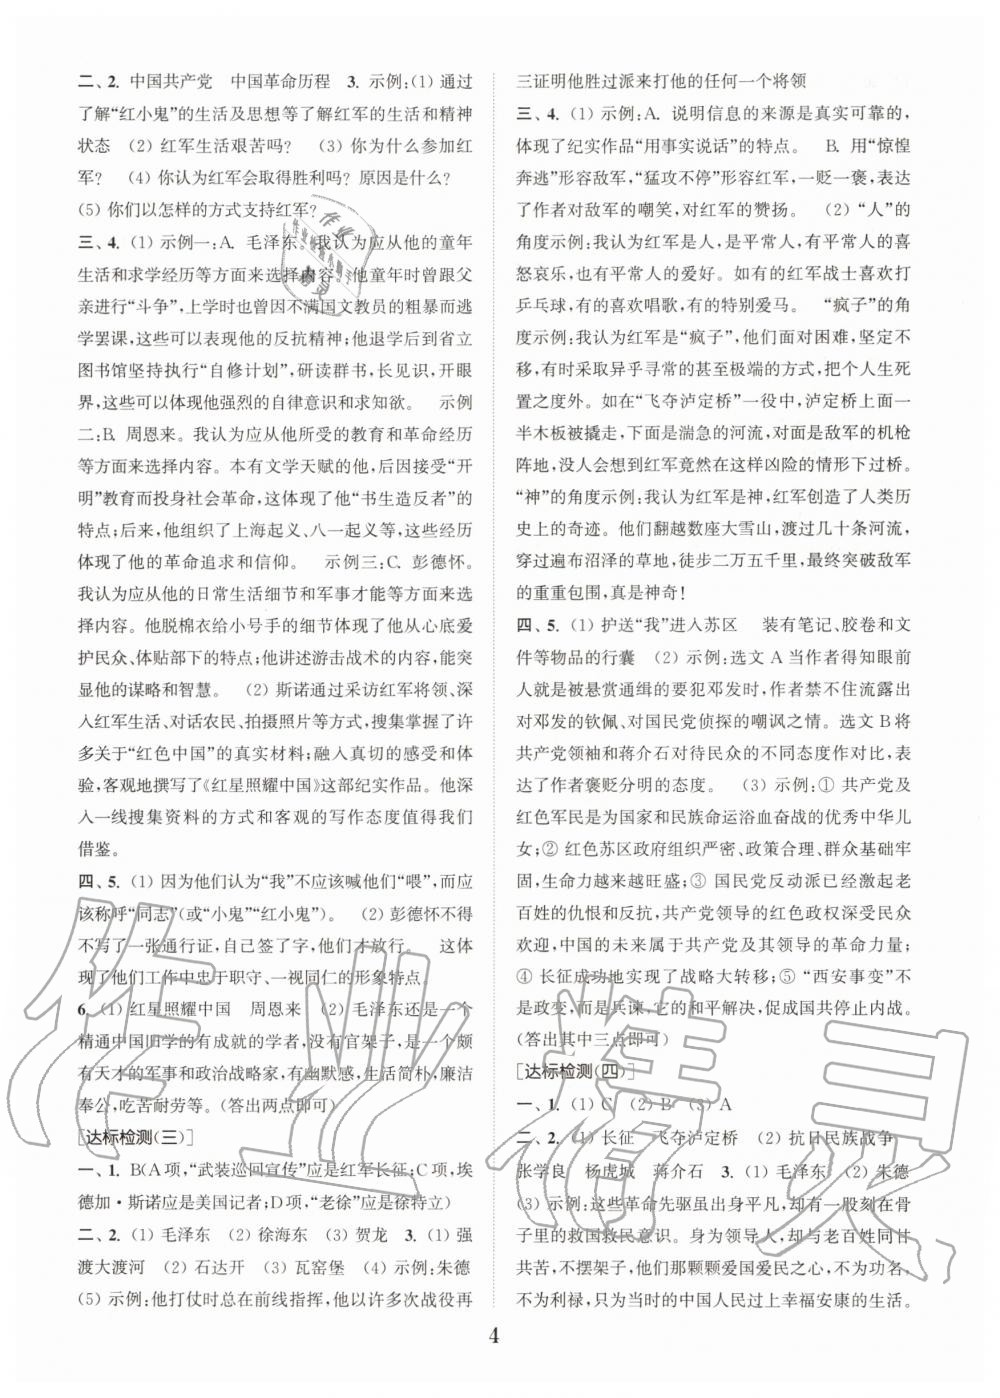 二、2. 中国共产党　中国革命历程　3. 示例:(1) 通过
了解“红小鬼”的生活及思想等了解红军的生活和精神
状态　(2) 红军生活艰苦吗?　(3) 你为什么参加红
军?　(4) 你认为红军会取得胜利吗? 原因是什么?
(5) 你们以怎样的方式支持红军?
三、4. (1) 示例一:A. 毛泽东。我认为应从他的童年
生活和求学经历等方面来选择内容。他童年时曾跟父
亲进行“斗争”,上学时也曾因不满国文教员的粗暴而逃
学罢课,这些可以表现他的反抗精神;他退学后到省立
图书馆坚持执行“自修计划”,研读群书,长见识,开眼
界,这些可以体现他强烈的自律意识和求知欲。　示例
二:B. 周恩来。我认为应从他所受的教育和革命经历
等方面来选择内容。本有文学天赋的他,后因接受“开
明”教育而投身社会革命,这体现了他“书生造反者”的
特点;后来,他组织了上海起义、八一起义等,这些经历
体现了他的革命追求和信仰。　示例三:C. 彭德怀。
我认为应从他的日常生活细节和军事才能等方面来选
择内容。他脱棉衣给小号手的细节体现了他从心底爱
护民众、体贴部下的特点;他讲述游击战术的内容,能突
显他的谋略和智慧。　(2) 斯诺通过采访红军将领、深
入红军生活、对话农民、拍摄照片等方式,搜集掌握了许
多关于“红色中国”的真实材料;融入真切的感受和体
验,客观地撰写了《红星照耀中国》这部纪实作品。他深
入一线搜集资料的方式和客观的写作态度值得我们
借鉴。
四、5. (1) 因为他们认为“我”不应该喊他们“喂”,而应
该称呼“同志”(或“小鬼”“红小鬼”)。　(2) 彭德怀不得
不写了一张通行证,自己签了字,他们才放行。　这体
现了他们工作中忠于职守、一视同仁的形象特点。
6. (1) 红星照耀中国　周恩来　(2) 毛泽东还是一个
精通中国旧学的有成就的学者,没有官架子,是一个颇
有天才的军事和政治战略家,有幽默感,生活简朴,廉洁
奉公,吃苦耐劳等。(答出两点即可)
[达标检测(三)]
一、1. B(A项,“武装巡回宣传”应是红军长征;C项,埃
德加·斯诺应是美国记者;D项,“老徐”应是徐特立)
二、2. (1) 毛泽东　(2) 徐海东　(3) 贺龙　3. (1) 强
渡大渡河　(2) 石达开　(3) 瓦窑堡　(4) 示例:朱德
(5) 示例:他打仗时总在前线指挥,他以许多次战役再
三证明他胜过派来打他的任何一个将领
三、4. (1) 示例:A. 说明信息的来源是真实可靠的,
体现了纪实作品“用事实说话”的特点。　B. 用“惊惶
奔逃”形容敌军,“猛攻不停”形容红军,一贬一褒,表达
了作者对敌军的嘲笑,对红军的赞扬。　(2) “人”的
角度示例:我认为红军是人,是平常人,有平常人的喜
怒哀乐,也有平常人的爱好。如有的红军战士喜欢打
乒乓球,有的喜欢唱歌,有的特别爱马。　“疯子”的角
度示例:我认为红军是“疯子”,他们面对困难,坚定不
移,有时采取异乎寻常的甚至极端的方式,把个人生死
置之度外。如在“飞夺泸定桥”一役中,泸定桥上一
半木板被撬走,下面是湍急的河流,对面是敌军的机枪
阵地,没人会想到红军竟然在这样凶险的情形下过桥。
“神”的角度示例:我认为红军是神,红军创造了人类历
史上的奇迹。他们翻越数座大雪山,渡过几十条河流,
穿过遍布沼泽的草地,徒步二万五千里,最终突破敌军
的重重包围,真是神奇!
四、5. (1) 护送“我”进入苏区　装有笔记、胶卷和文
件等物品的行囊　(2) 示例:选文A当作者得知眼前
人就是被悬赏通缉的要犯邓发时,作者禁不住流露出
对邓发的钦佩、对国民党侦探的嘲讽之情。选文B将
共产党领袖和蒋介石对待民众的不同态度作对比,表
达了作者褒贬分明的态度。　(3) 示例:① 共产党及
红色军民是为国家和民族命运浴血奋战的优秀中华儿
女;② 红色苏区政府组织严密、政策合理、群众基础牢
固,生命力越来越旺盛;③ 国民党反动派已经激起老
百姓的仇恨和反抗,共产党领导的红色政权深受民众
欢迎,中国的未来属于共产党及其领导的革命力量;
④ 长征成功地实现了战略大转移;⑤ “西安事变”不
是政变,而是兵谏,它的和平解决,促成国共停止内战。
(答出其中三点即可)
[达标检测(四)]
一、1. (1) C　(2) B　(3) A
二、2. (1) 长征　飞夺泸定桥　(2) 抗日民族战争
张学良　杨虎城　蒋介石　3. (1) 毛泽东　(2) 朱德
(3) 示例:这些革命先驱虽出身平凡,却有一股刻在骨
子里的救国救民意识。身为领导人,却与老百姓同甘
共苦,不摆架子,他们那颗颗爱国爱民之心,不为功名,
不为利禄,只为当时的中国人民过上幸福安康的生活。
4
作业精灵
作业
精灵